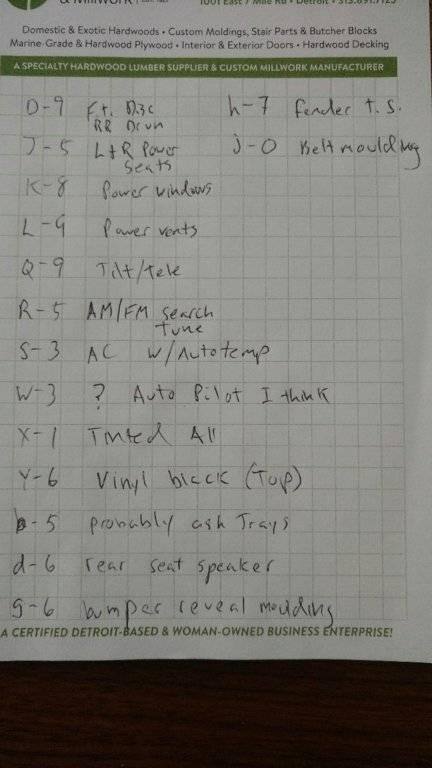 & Millwork
1001 East 7 Mile Rd • Detroit • 313.891.7125
Domestic & Exotic Hardwoods • Custom Moldings, Stair Parts & Butcher Blocks
Marine-Grade & Hardwood Plywood • Interior & Exterior Doors • Hardwood Decking
A SPECIALTY HARDWOOD LUMBER SUPPLIER & CUSTOM MILLWORK MANUFACTURER
D-9 Ft. Disc h-7 fender t.s.
RR Drum
J-5 L+R Power j-0 Belt moulding
Seats
K-8 Power windows
L-9 Power vents
Q-9 Tilt/tele
R-5 AM/FM search
tune
S-3 AC w/Autotemp
W-3 ? Auto Pilot I think
X-1 Tinted All
Y-6 Vinyl black (Top)
b-5 probably ash Trays
d-6 rear seat speaker
g-6 bumper reveal moulding
A CERTIFIED DETROIT-BASED & WOMAN-OWNED BUSINESS ENTERPRISE!